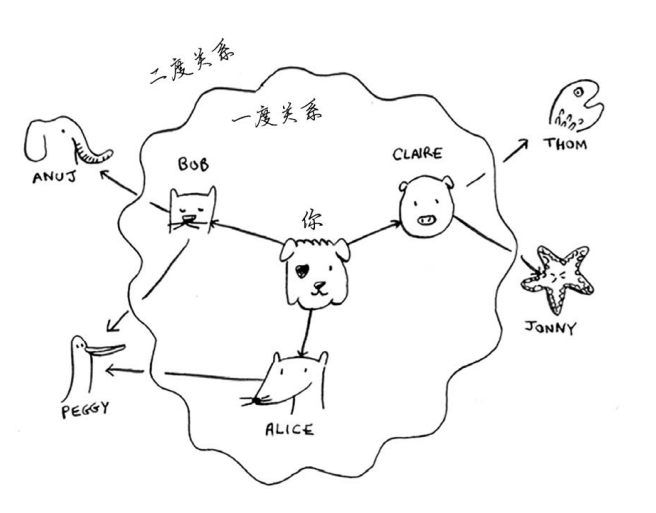 二度关系
一度关系
THOM
CLAIRE
BOB
ANUJ
你
JONNY
PEGGY
ALICE